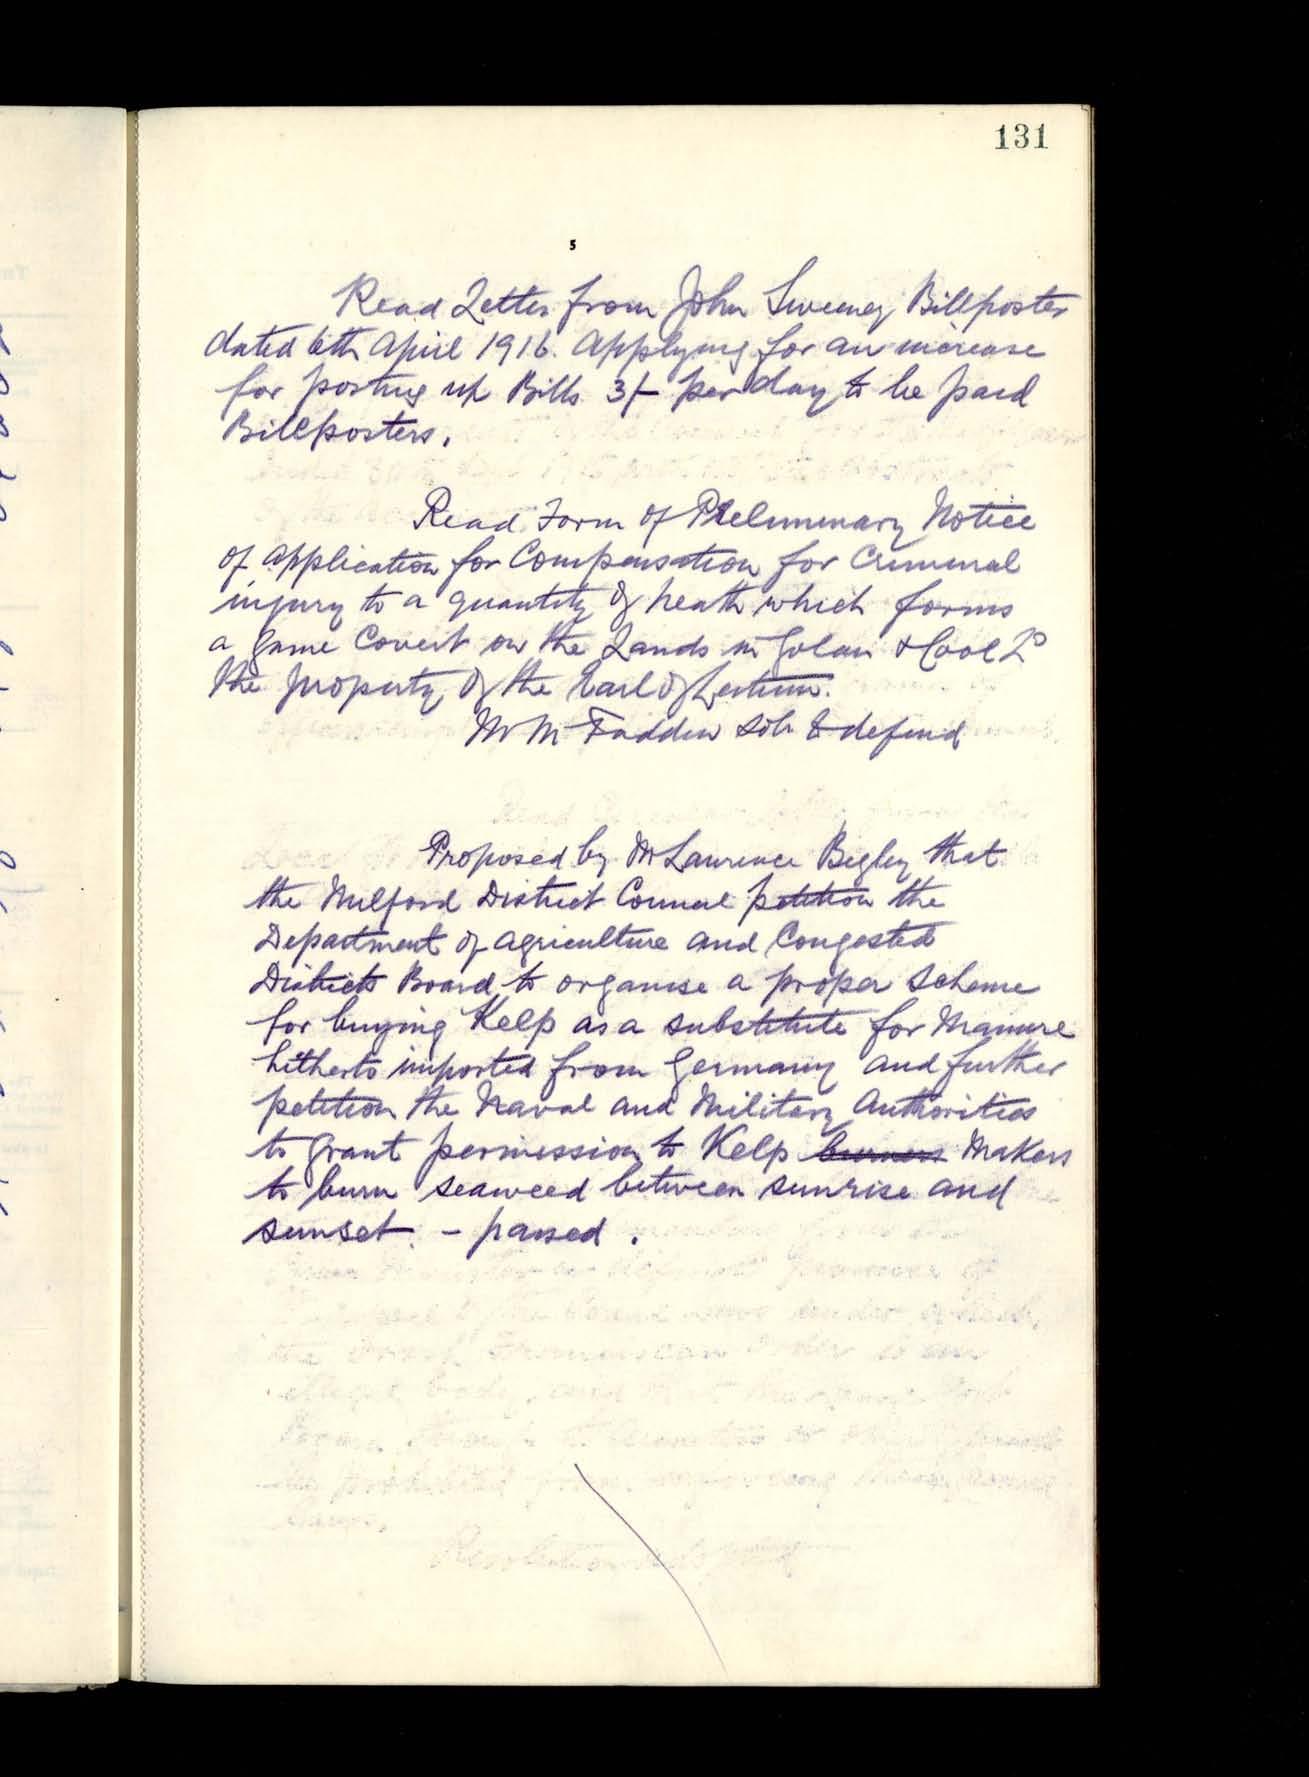 131
5
Read Letter from John Sweeney Billposter
dated 6th April 1916. Applying for an increase
for posting up Bills 3/- per day to be paid
Billposters.
Read Form of Preliminary Notice
of application for Compensation for Criminal
injury to a quantity of heath which forms
a Game Covert on the Lands in Golan & Cool Lr
the property of the Earl of Leitrim.
Mr McFadden Solr to defend
Proposed by Mr Laurence Begley that
the Milford District Council petition the
Department of Agriculture and Congested
Districts Board to organise a proper scheme
for buying Kelp as a substitute for Manure
hitherto imported from Germany and further
petition the Naval and Military Authorities
to grant permission to Kelp burners Makers
to burn seaweed between sunrise and
sunset. - passed.